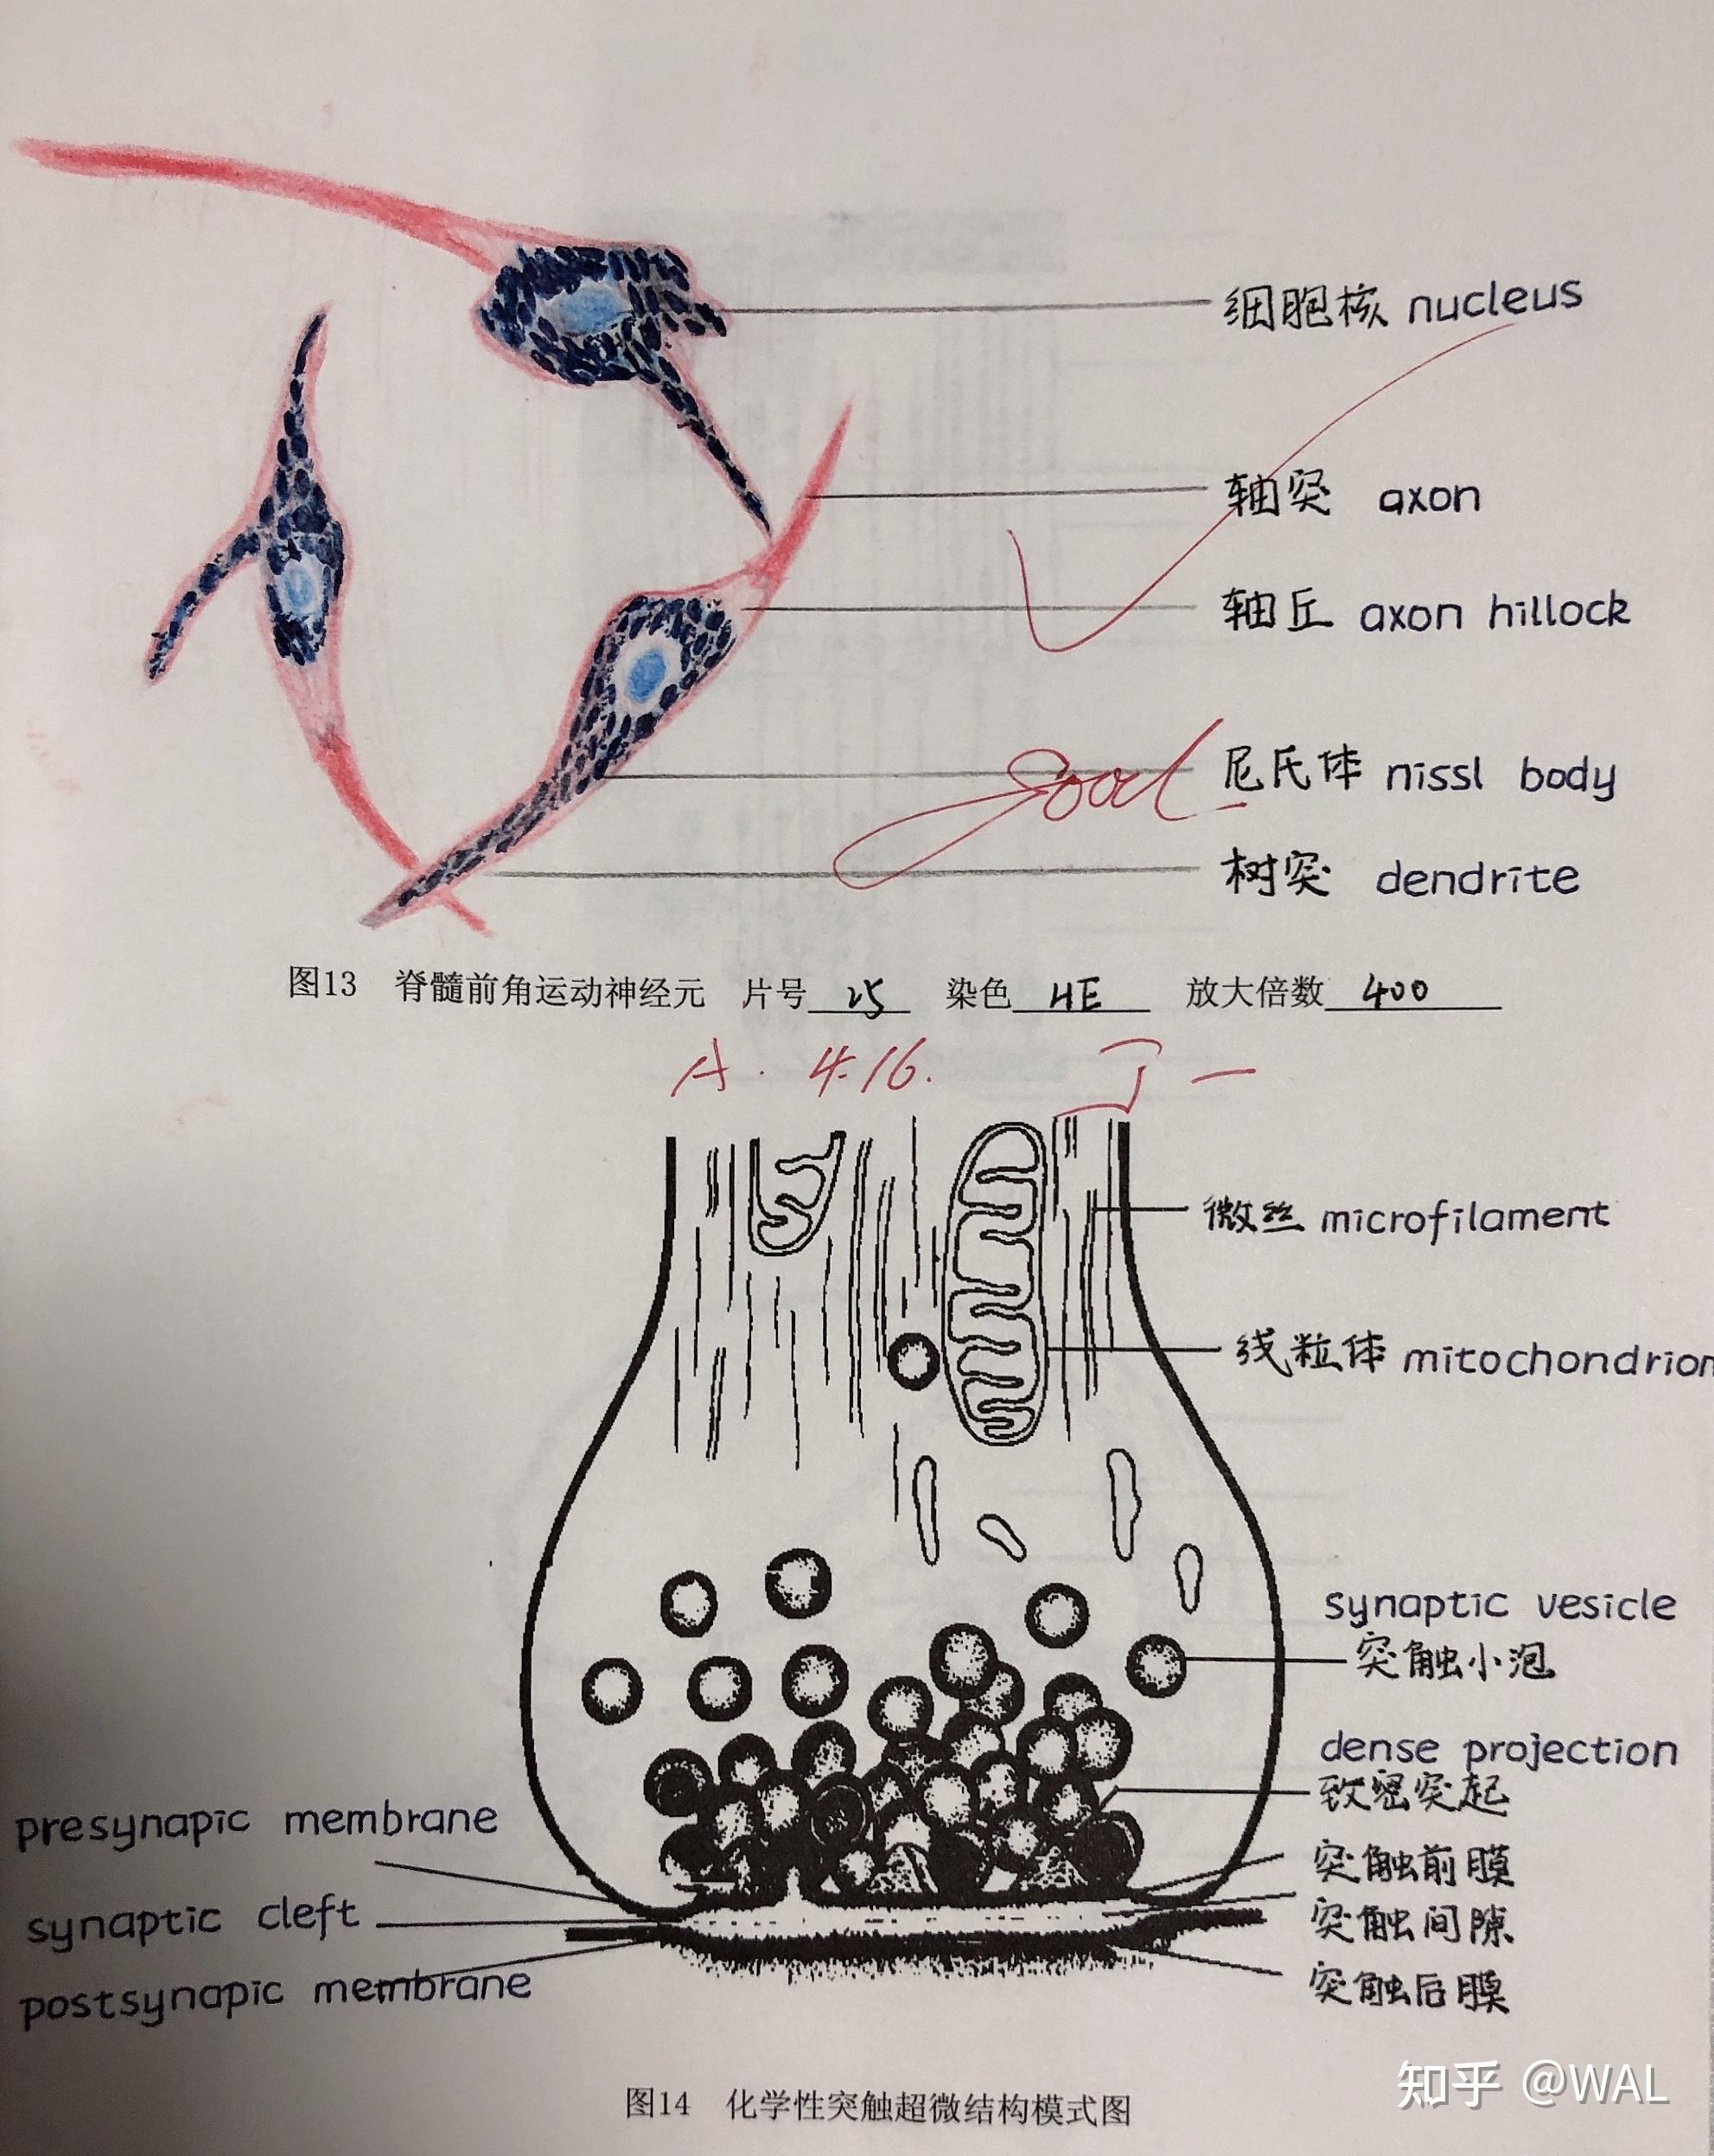 细胞核 nucleus
轴突 axon
轴丘 axon hillock
尼氏体 nissl body
good
树突 dendrite
图13 脊髓前角运动神经元 片号 25 染色 HE 放大倍数 400
A. 4.16.
微丝 microfilament
线粒体 mitochondrion
synaptic vesicle
突触小泡
dense projection
致密突起
presynapic membrane
突触前膜
synaptic cleft
突触间隙
postsynapic membrane
突触后膜
图14 化学性突触超微结构模式图
知乎 @WAL